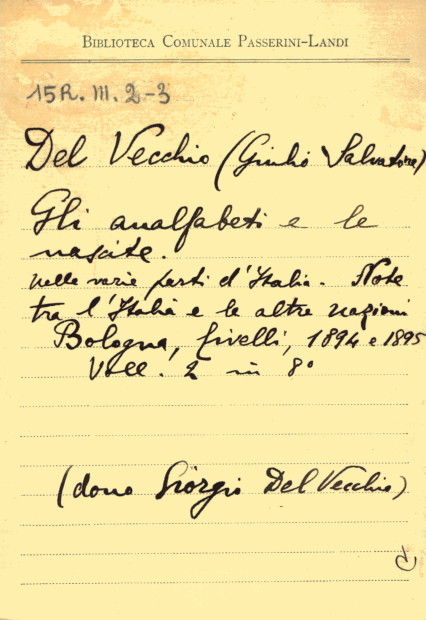 BIBLIOTECA COMUNALE PASSERINI-LANDI
15R. III. 2-3
Del Vecchio (Giulio Salvatore)
Gli analfabeti e le
nascite.
nelle varie parti d'Italia. Note
tra l'Italia e le altre nazioni
Bologna, Civelli, 1894 e 1895
Voll. 2 in 8°
(dono Giorgio Del Vecchio)